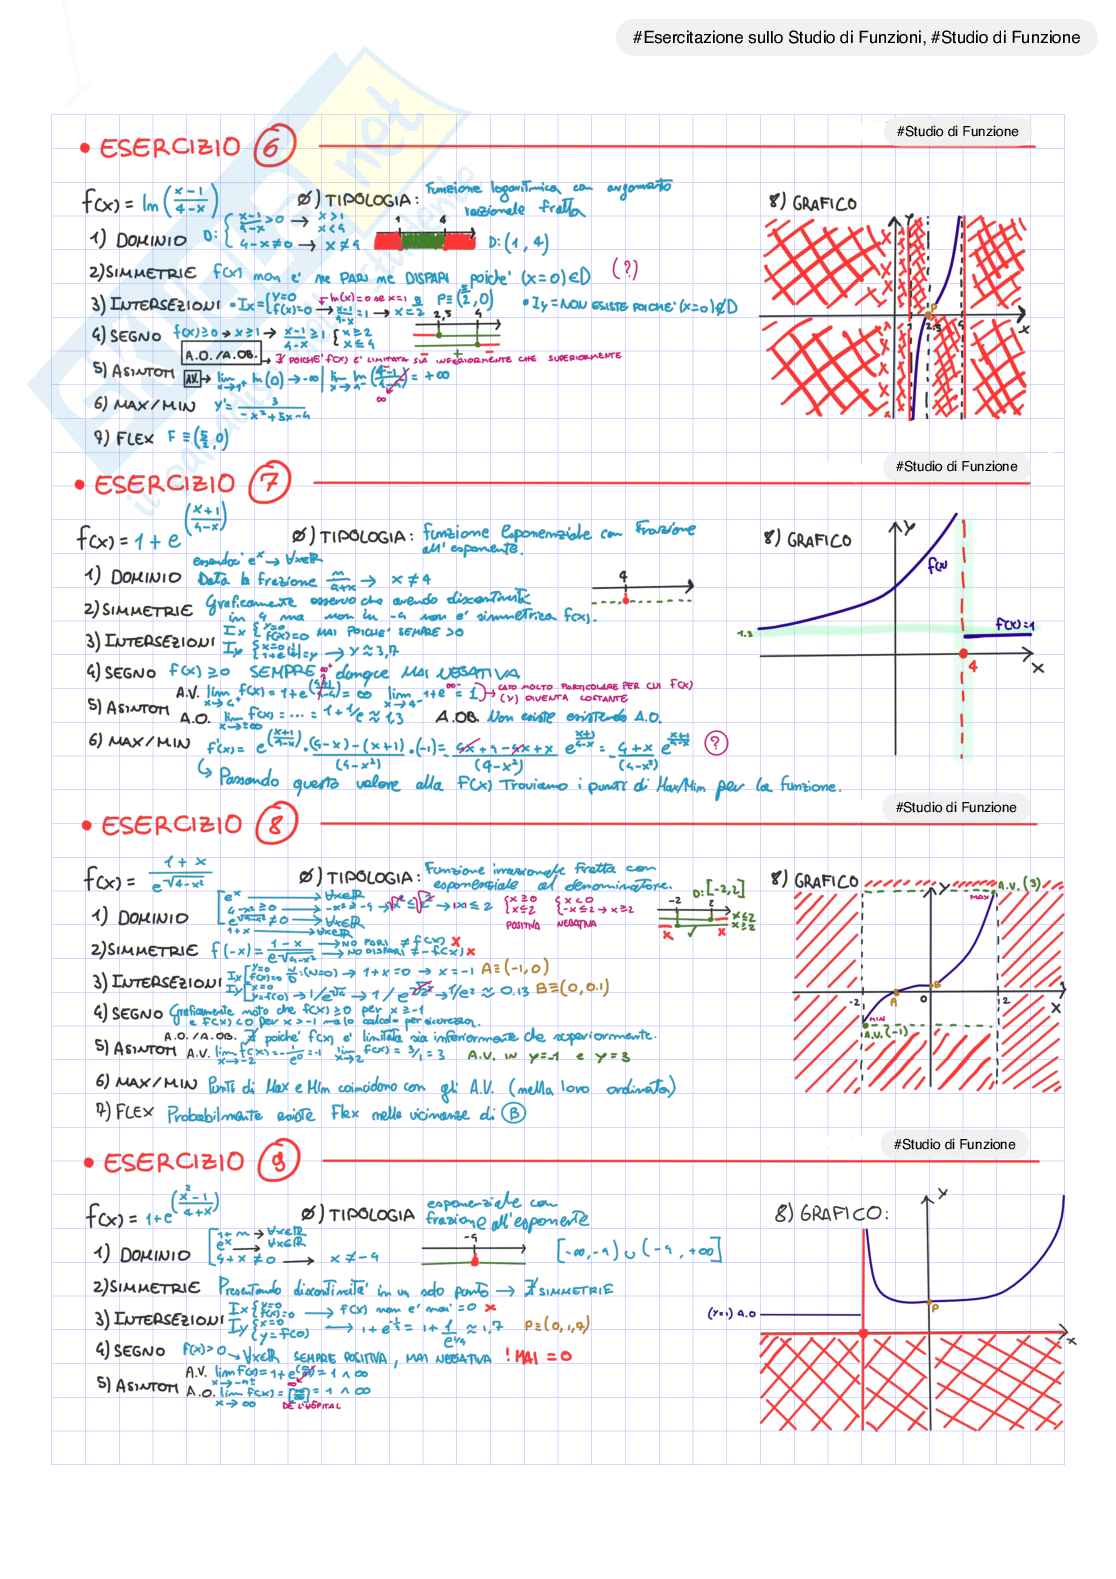 #Esercitazione sullo Studio di Funzioni, #Studio di Funzione
#Studio di Funzione
• ESERCIZIO 6
f(x) = ln((x-1)/(4-x))
Ø) TIPOLOGIA: Funzione logaritmica con argomento
razionale fratta
8) GRAFICO
1) DOMINIO D: { (x-1)/(4-x) > 0 → x>1 x<4
4-x ≠ 0 → x ≠ 4
1 4
D: (1, 4)
2) SIMMETRIE f(x) non e' ne PARI ne DISPARI poiche' (x=0)∉D (?)
3) INTERSEZIONI • Ix = { y=0 f(x)=0 → (x-1)/(4-x) = 1 → x = 5/2 P≡(5/2, 0) • Iy = NON ESISTE POICHE' (x=0)∉D
ln(x)=0 se x=1
4) SEGNO f(x)≥0 → x≥1 → (x-1)/(4-x) ≥ 1 { x≥2 x≤4
2,5 4
- + -
A.O./A.OB. → ∄ POICHE' f(x) E' LIMITATA SIA INFERIORMENTE CHE SUPERIORMENTE
5) ASINTOTI A.V. → lim x→1+ ln(0) → -∞ | lim x→4- ln((4-1)/(4-4)) = +∞
∞
6) MAX/MIN y' = 3/(-x²+5x-4)
7) FLEX F≡(5/2, 0)
y
2,5 4 x
#Studio di Funzione
• ESERCIZIO 7
f(x) = 1 + e^((x+1)/(4-x))
Ø) TIPOLOGIA: funzione Esponenziale con Frazione
all'esponente.
8) GRAFICO
essendoci e^x → ∀x∈ℝ
1) DOMINIO Data la frazione n/(4+x) → x ≠ 4
4
2) SIMMETRIE Graficamente osservo che avendo discontinuità
in 4 ma non in -4 non e' simmetrica f(x).
3) INTERSEZIONI Ix { y=0 f(x)=0 MAI POICHE' SEMPRE >0
Iy { x=0 1+e^(1/4)=y → y≈3,7
4) SEGNO f(x) ≥0 SEMPRE dunque MAI NEGATIVA
5) ASINTOTI A.V. lim x→4+ f(x) = 1+e = ∞ lim x→4- 1+e^∞- = 1 → CASO MOLTO PARTICOLARE PER CUI f(x)
(y) DIVENTA COSTANTE
A.O. lim x→±∞ f(x) = ... = 1+1/e ≈ 1,3 A.OB. Non esiste esistendo A.O.
6) MAX/MIN f'(x) = e^((x+1)/(4-x)) · (4-x)-(x+1)·(-1)/(4-x²) = 4x+4-4x+x/(4-x²) e^((x+1)/(4-x)) = 4+x/(4-x²) e^((x+1)/(4-x)) (?)
↳ Passando questo valore alla f(x) Troviamo i punti di Max/Min per la funzione.
y
f(x)
1.3
f(x)=1
4
x
#Studio di Funzione
• ESERCIZIO 8
f(x) = (1+x)/e^√(4-x²)
Ø) TIPOLOGIA: Funzione irrazionale fratta con
esponenziale al denominatore.
8) GRAFICO
1) DOMINIO [ e^x → ∀x∈ℝ
4-x² ≥ 0 → -x² ≥ -4 → √x² ≤ √2² → |x| ≤ 2 { x≥0 x≤2 { x<0 -x≤2 → x≥2
e^√(4-x²) ≠ 0 → ∀x∈ℝ
1+x → ∀x∈ℝ
POSITIVA NEGATIVA
D: [-2,2]
-2 2
x≤2
x≥2
x ✓ x
2) SIMMETRIE f(-x) = (1-x)/e^√(4-x²) → NO PARI ≠ f(x) x
→ NO DISPARI ≠ -f(x) x
3) INTERSEZIONI Ix [ y=0 f(x)=0 N/D: (N=0) → 1+x=0 → x=-1 A≡(-1,0)
Iy [ x=0 y=f(0) → 1/e^√4 → 1/e^√2² → 1/e² ≈ 0.13 B≡(0, 0.1)
4) SEGNO Graficamente noto che f(x) ≥0 per x≥-1
e f(x)<0 per x>-1 ma lo calcolo per sicurezza.
A.O./A.OB. ∄ poiche' f(x) e' limitata sia inferiormente che superiormente.
5) ASINTOTI A.V. lim x→-2 f(x) = -1/e^0 = -1 lim x→2 f(x) = 3/1 = 3 A.V. IN y=-1 e y=3
6) MAX/MIN Punti di Max e Min coincidono con gli A.V. (nella loro ordinata)
7) FLEX Probabilmente esiste Flex nelle vicinanze di B
y
A.V. (3)
MAX
-2 A 0 B 2 x
MIN
A.V. (-1)
#Studio di Funzione
• ESERCIZIO 9
f(x) = 1+e^((x²-1)/(4+x))
Ø) TIPOLOGIA esponenziale con
frazione all'esponente
8) GRAFICO:
1) DOMINIO [ 1+n → ∀x∈ℝ
e^x → ∀x∈ℝ
4+x ≠ 0 → x ≠ -4
-4
[-∞, -4) ∪ (-4, +∞]
2) SIMMETRIE Presentando discontinuità in un solo punto → ∄ SIMMETRIE
3) INTERSEZIONI Ix { y=0 f(x)=0 → f(x) non e' mai =0 x
Iy { x=0 y=f(0) → 1+e^(-1/4) = 1+1/e^(1/4) ≈ 1,7 P≡(0, 1,7)
4) SEGNO f(x)>0 → ∀x∈ℝ SEMPRE POSITIVA, MAI NEGATIVA ! MAI = 0
5) ASINTOTI A.V. lim x→-4± f(x) = 1+e = 1 ∧ ∞
A.O. lim x→∞ f(x) = [∞/∞] = 1 ∧ ∞
DE L'HOPITAL
y
P
(y=1) A.O
x